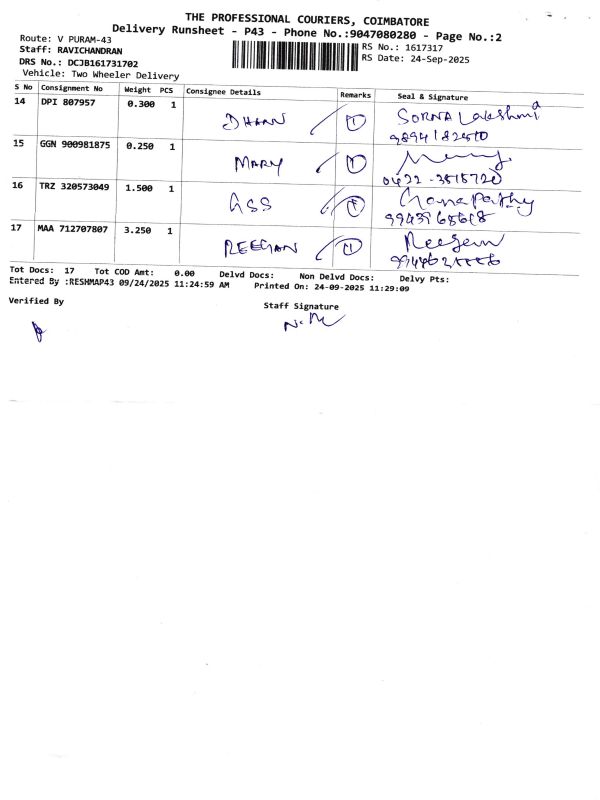 THE PROFESSIONAL COURIERS, COIMBATORE
Delivery Runsheet - P43 - Phone No.:9047080280 - Page No.:2
Route: V PURAM-43
RS No.: 1617317
Staff: RAVICHANDRAN
RS Date: 24-Sep-2025
DRS No.: DCJB161731702
Vehicle: Two Wheeler Delivery
S No Consignment No Weight PCS Consignee Details Remarks Seal & Signature
14 DPI 807957 0.300 1 DHAAN 1 SORNA Lakshmi
9894182510
15 GGN 900981875 0.250 1 MARY 1
0422-3515720
16 TRZ 320573049 1.500 1 ASS 1 Ganapathy
9943968618
17 MAA 712707807 3.250 1 REEGAN 1 Reegan
Tot Docs: 17 Tot COD Amt: 0.00 Delvd Docs: Non Delvd Docs: Delvy Pts:
Entered By :RESHMAP43 09/24/2025 11:24:59 AM Printed On: 24-09-2025 11:29:09
Verified By Staff Signature